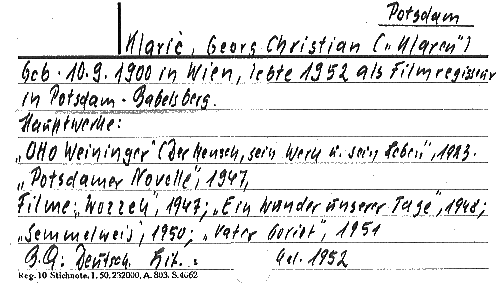 Potsdam
Klarić, Georg Christian („Klaren")
Geb. 10.9.1900 in Wien, lebte 1952 als Filmregisseur
in Potsdam-Babelsberg.
Hauptwerke:
„Otto Weininger" (Der Mensch, sein Werk u. sein Leben", 1923.
„Potsdamer Novelle", 1947,
Filme: „Wozzek", 1947; „Ein Wunder unserer Tage", 1948;
„Semmelweis", 1950; „Vater Goriot", 1951
Deutsch. Lit. : 1952
Reg. 10 Stichnote. I. 50. 232000. A. 803. S. 4062